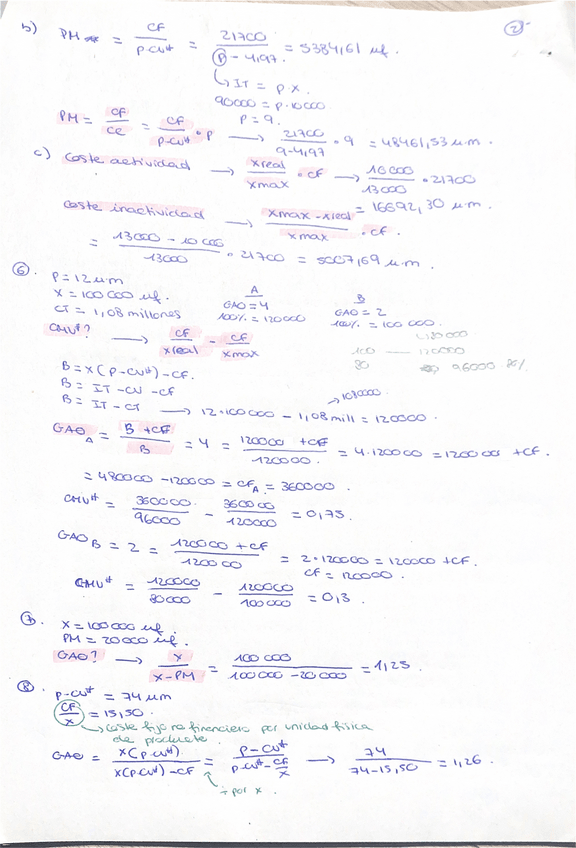 ②
b) PM = CF / p-cu* = 21700 / p - 4,97 = 5384,61 uf.
↳ IT = p·x.
90000 = p·10000.
p = 9.
PM = CF / CE = CF / p-cu* · p → 21700 / 9-4,97 · 9 = 48461,53 u.m.
c) Coste actividad → xreal / xmax · CF → 10000 / 13000 · 21700
= 16692,30 u.m.
Coste inactividad → xmax - xreal / xmax · CF.
= 13000 - 10000 / 13000 · 21700 = 5007,69 u.m.
⑥. P = 12 u.m
X = 100000 uf.
CT = 1,08 millones
A
GAO = 4
100% = 120000
B
GAO = 2
100% = 100000.
CMU*? → CF / xreal - CF / xmax
100 — 120000
80 96000 80%
B = x(p-cu*) - CF.
B = IT - CU - CF
B = IT - CT → 12·100000 - 1,08mill = 120000.
→ 1080000.
GAO A = B + CF / B = 4 = 120000 + CF / 120000. = 4·120000 = 120000 + CF.
= 480000 - 120000 = CF A = 360000.
CMU* = 360000 / 96000 - 360000 / 120000 = 0,75.
GAO B = 2 = 120000 + CF / 120000 = 2·120000 = 120000 + CF.
CF = 120000.
CMU* = 120000 / 80000 - 120000 / 100000 = 0,3.
⑦. X = 100000 uf.
PM = 20000 uf.
GAO? → X / X-PM = 100000 / 100000 - 20000 = 1,25
⑧. p-cu* = 74 um
CF / x = 15,50.
↳ coste fijo no financiero por unidad física
de producto.
GAO = x(p-cu*) / x(p-cu*) - CF = p-cu* / p-cu* - CF / x → 74 / 74-15,50 = 1,26.
÷ por x.